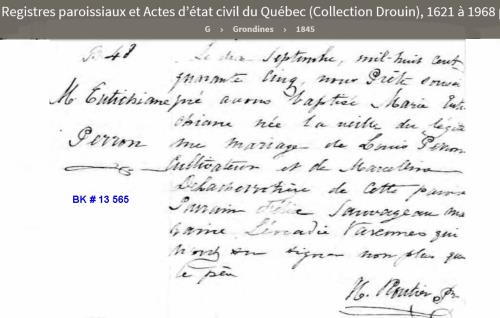 Registres paroissiaux et Actes d'état civil du Québec (Collection Drouin), 1621 à 1968
G › Grondines › 1845
B 48
M Eutichiane
Perron
BK # 13 565
Le dix Septembre, mil-huit cent
quarante cinq, nous Prêtre soussi
gné avons baptisé Marie Euti
chiane née la veille du légiti
me mariage de Louis Perron
Cultivateur et de Marcelline
Delachevrotière de cette paroisse
Parrain Félix Sauvageau ma
raine Léocadie Varennes qui
n'ont su signer non plus que
le père
Ptr.